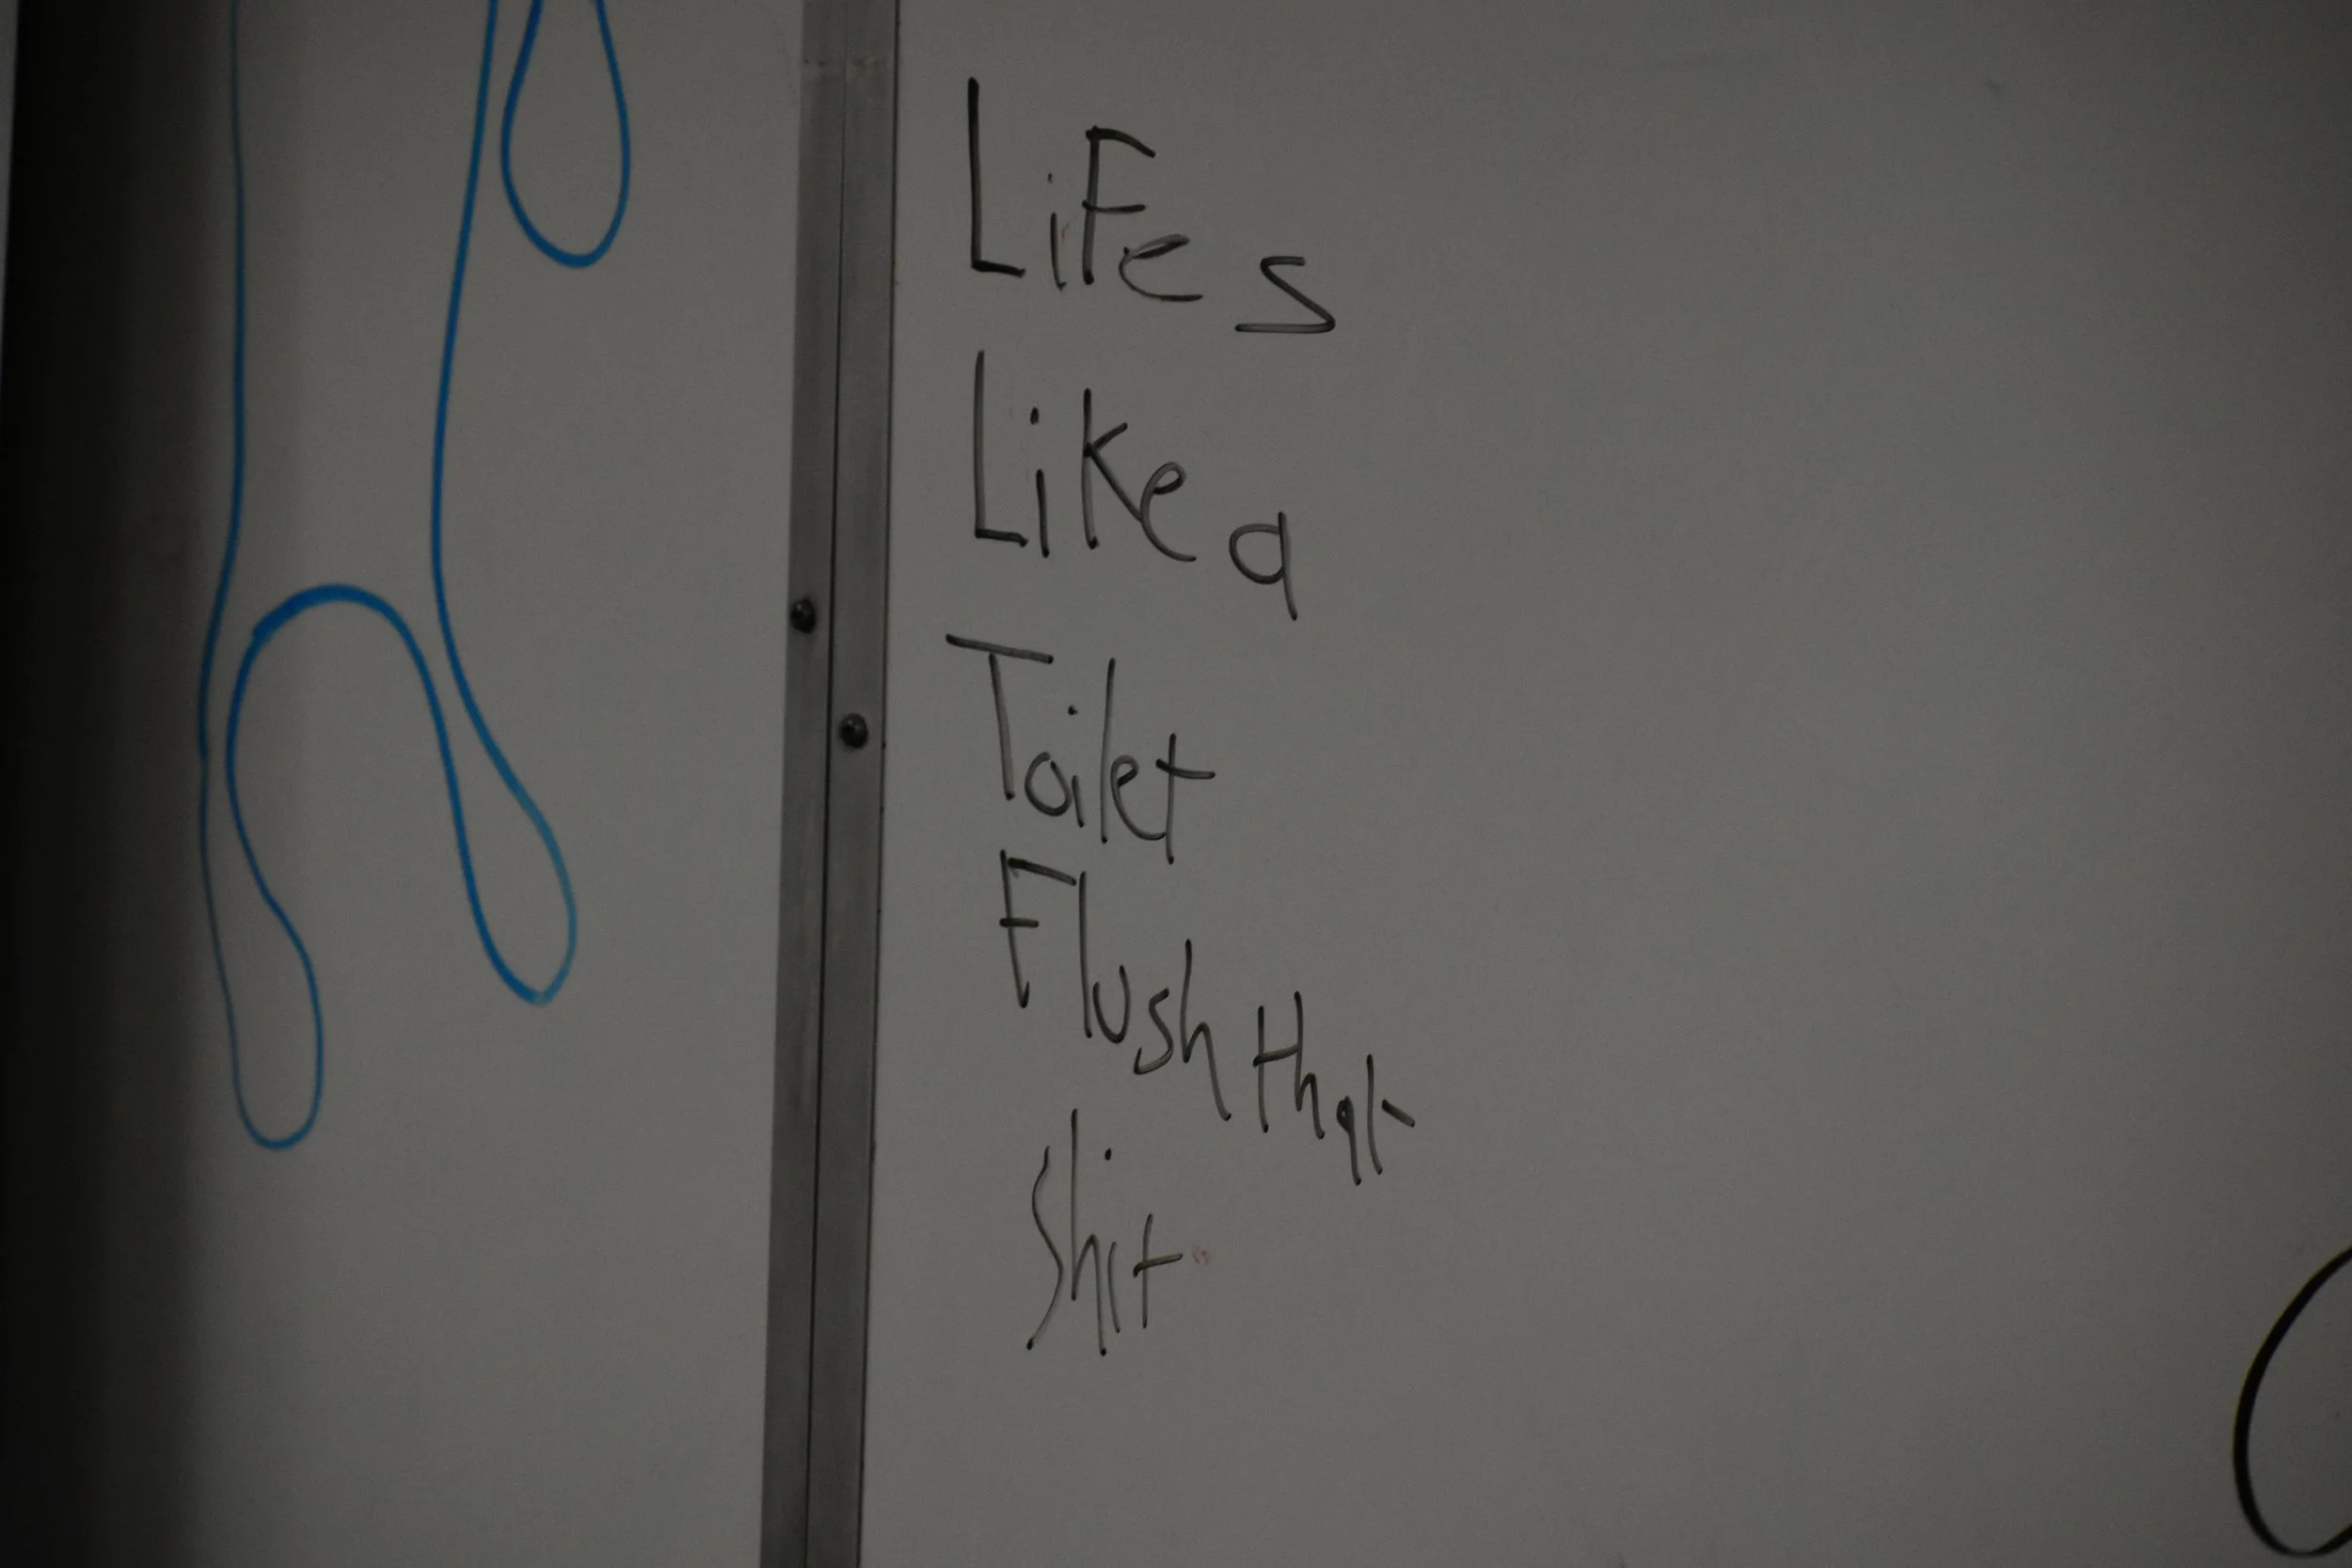 LiFe s
Like a
Toilet
Flush that
Shit